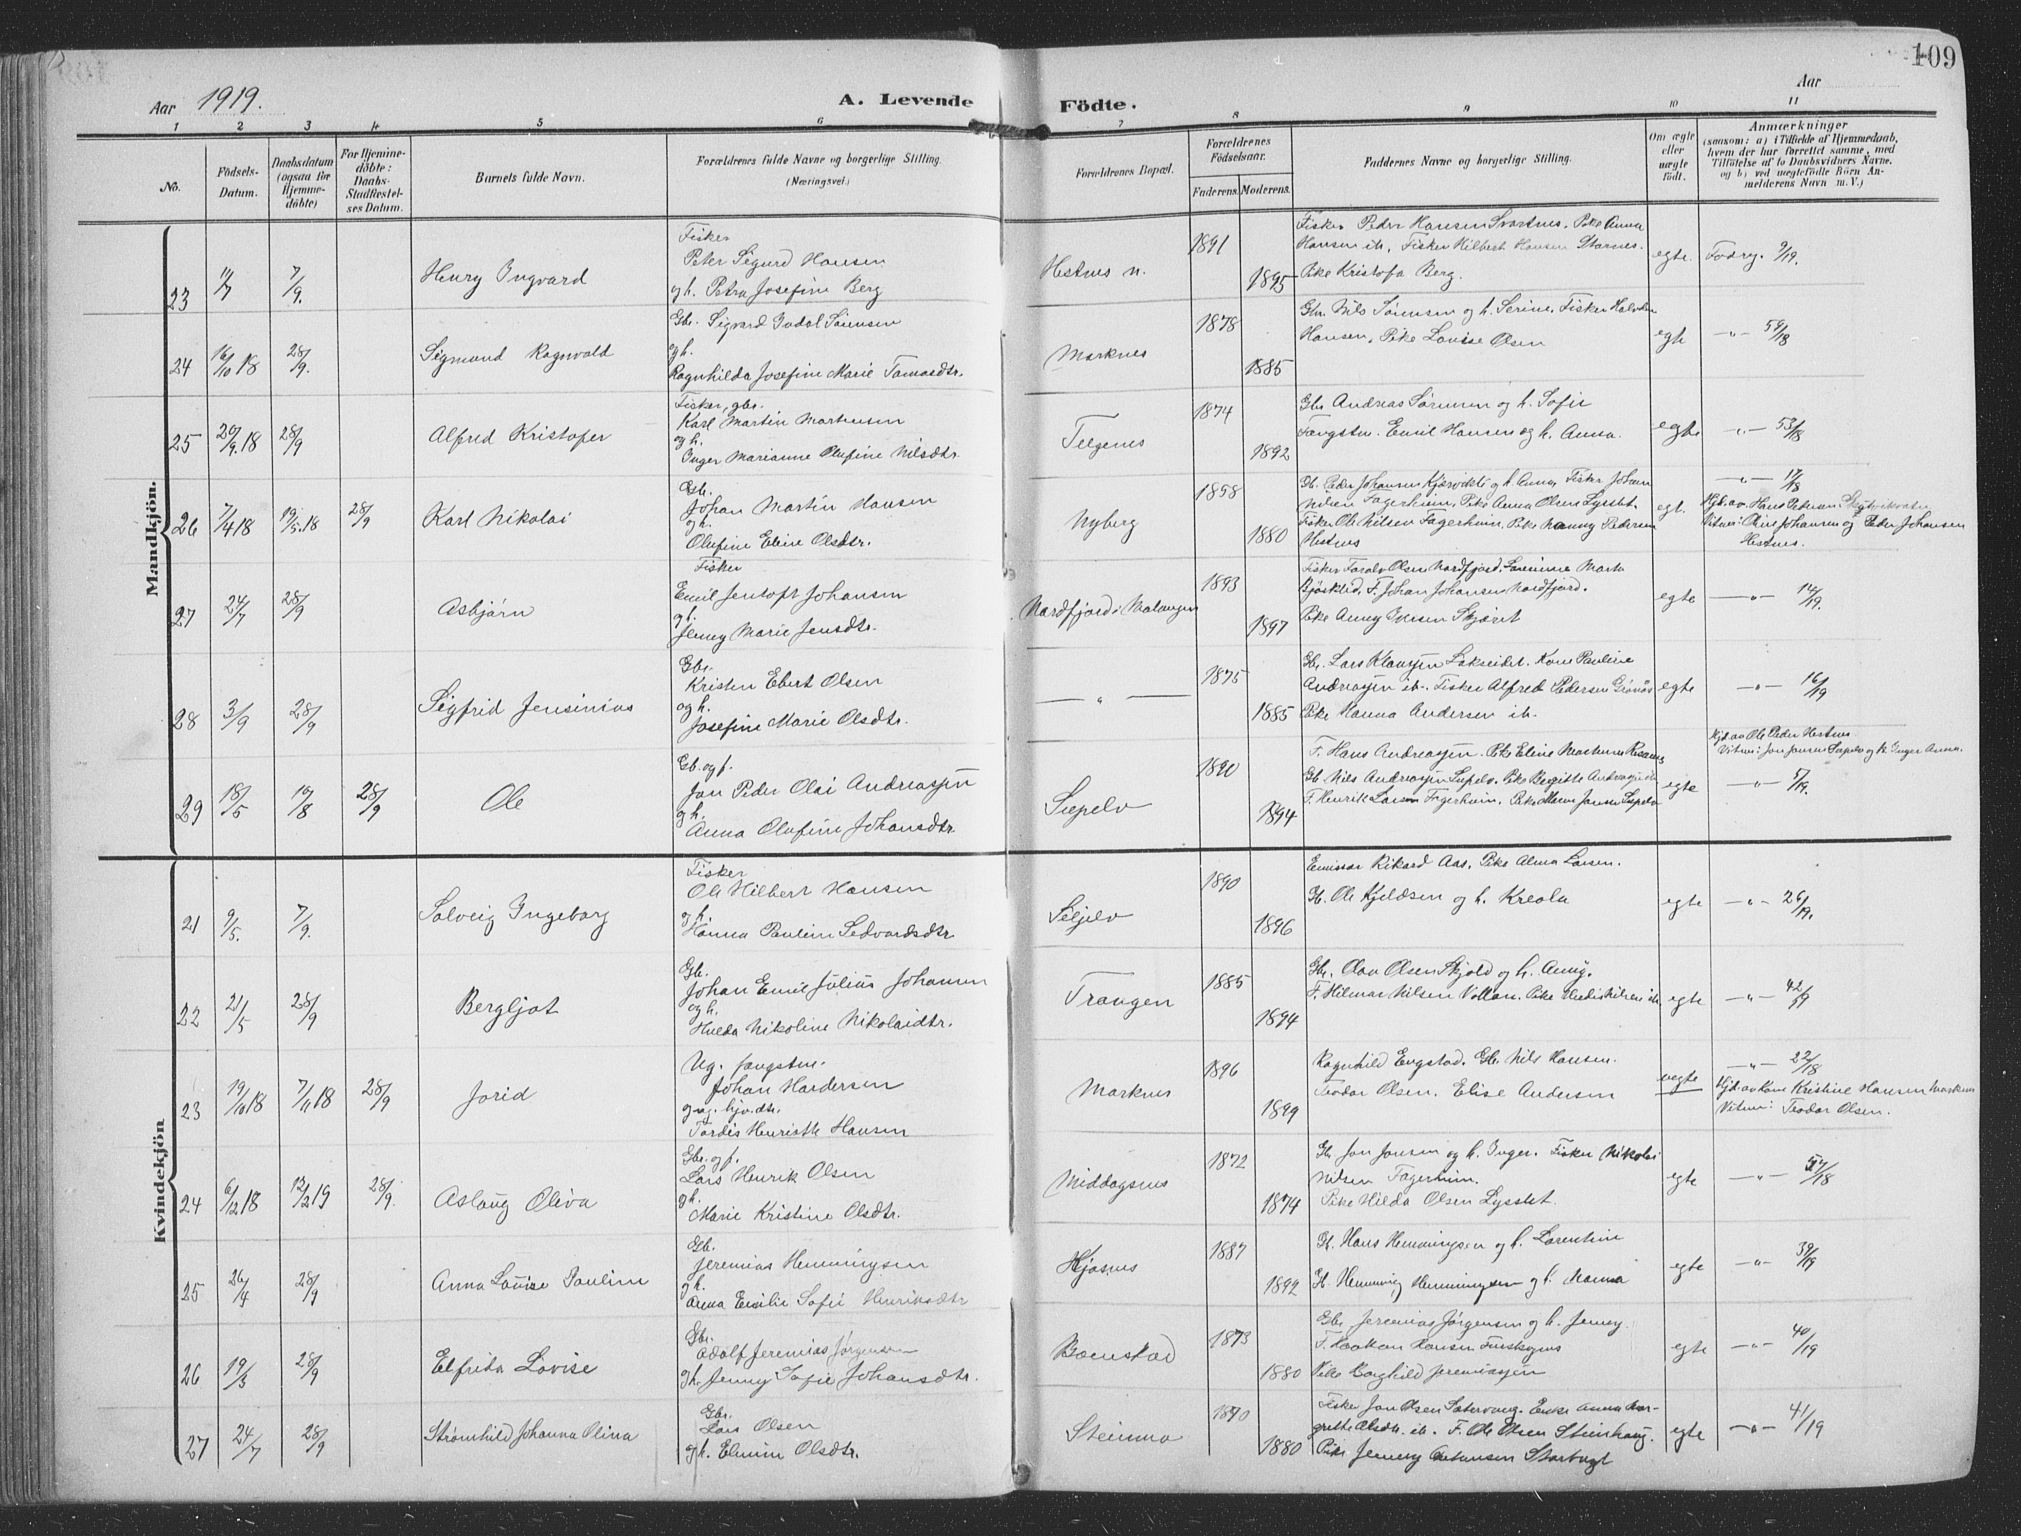 109
Aar 1919.
A. Levende Födte.
Aar
1 2 3 4 5 6 7 8 9 10 11
No.
Födsels-Datum.
Daabsdatum (ogsaa for Hjemmedöbte)
For Hjemmedöbte: Daabs-Stadfæstelses Datum.
Barnets fulde Navn.
Forældrenes fulde Navne og borgerlige Stilling.
(Næringsvei.)
Forældrenes Bopæl.
Forældrenes Födselsaar.
Faderens. Moderens.
Faddernes Navne og borgerlige Stilling.
Om ægte eller uægte födt.
Anmærkninger
(saasom: a) i Tilfælde af Hjemmedaab, hvem der har forrettet samme, med Tilföielse af to Daabsvidners Navne. og b) ved uægtefödte Börn Anmelderens Navn m. V.)
Mandkjön.
Fisker
Peter Sigurd Hansen
og h. Petra Josefine Berg
23 7/9. Henry Ingvard Hestnes n. 1891 1895
Fisker Peder Hansen Svartnes. Pike Anna
Hansen ib. Fisker Hilbert Hansen
Pike Kristofa Berg.
egte. Fødrg. 9/19.
Gbr. Sigvard Indal Sørensen
og h.
Ragnhilda Josefine Marie Tomasdtr.
24 16/10 18 28/9. Sigmund Ragnvald Marknes 1878 1885
Gbr. Nils Sørensen og h. Serine. Fisker Halvdan
Hansen. Pike Lovise Olsen
egte -"- 59/18
Fisker, gbr.
Karl Martin Martinsen
og h.
Inger Marianne Olufine Nilsdtr.
25 20/9 18 28/9 Alfred Kristofer 1874 1892
Gbr Andreas Sørensen og h. Sofie
Fangstm. Emil Hansen og h. Anna.
egte -"- 53/18
Gb.
Johan Martin Hansen
og h.
Olufine Eline Olsdtr.
26 7/4 18 19/5 18 28/9 Karl Nikolai Nyberg 1858 1880
Gb. Peder Johansen og h. Anna, Fisker Johan
Nilsen Fagerheim, Pike Anna Olsen Lysslet.
Fisker Ole Nilsen Fagerheim. Pike Nanny Pedersen
Hestnes
egt. -"- 17/18
Hjd. av Hans Pedersen
Vitner: Johansen og Peder Johansen
Hestnes.
Fisker
Emil Jentoft Johansen
og h.
Jenny Marie Jensdtr.
27 24/7 28/9 Asbjørn Nordfjord i Malangen 1893 1897
Fisker Olsen Nordfjord. Marta
F. Johan Johansen Nordfjord.
Pike Anny Iversen Skjæret
egte -"- 14/19.
Gbr.
Kristen Ebert Olsen
og h.
Josefine Marie Olsdtr.
28 3/9 28/9 Sigfrid Jensinius -"- 1875 1885
Gbr. Lars Klausjen Lakseidet. Kone Pauline
Andreasjen ib. Fisker Alfred Pedersen Grønås
Pike Hanna Andersen ib.
egte -"- 16/19
Gb. og f.
Jon Peder Olai Andreasjen
og h.
Anna Olufine Johansdtr
29 18/5 28/9 Ole 1890 1894
F. Hans Andreasjen. Pike Eline
Gb. Nils Andreasjen Pike Bergitte
F. Henrik Larsen Fagerheim. Pike
egte
Hjd. av Ole Peder Hestnes
Vitner: Jon Jensen og h. Inger Anna.
-"- 5/19.
Kvindekjön
Fisker
Ole Hilbert Hansen
og h.
Hanna Pauline Sedvardsdtr
21 9/5. 7/9. Solveig Ingeborg 1890 1896
Emissær Rikard Aas. Pike Alma Larsen.
Gb. Ole Kjeldsen og h. Kreola
egte -"- 26/19.
Gb.
Johan Emil Julius Johansen
og h.
Hulda Nikoline Nikolaidtr.
22 21/5 28/9 Bergljot Trangen 1885 1894
Gbr. Olav Olsen Skjold og h. Anny.
F. Hilmar Nilsen Vollan. Pike Nilsen ib.
egte -"- 42/19
Ug. fangstm.
Johan Hardersen
og ug. hjv. dtr.
Tordis Henriette Hansen
23 19/10 18 7/11 18 28/9 Jorid Marknes 1896 1899
Ragnhild Engstad. Gb. Nils Hansen.
Teodor Olsen. Elise Andersen
uegte -"- 22/18
Hjd. av Kone Kristine Hansen Marknes
Vitner: Teodor Olsen.
Gbr. og f.
Lars Henrik Olsen
og h.
Marie Kristine Olsdtr.
24 6/12 18 12/2 19 28/9. Aslaug Oliva Middagsnes 1872 1874
Gb. Jon Jonsen og h. Inger. Fisker Nikolai
Nilsen Fagerheim.
Pike Hilda Olsen Lysslet.
egte
Gb.
Jeremias Hemmingsen
og h.
Anna Emilie Sofie Henriksdtr
25 26/4 28/9 Anna Lovise Pauline 1887 1892
Gb. Hans Hemmingsen og h. Lorentine
Gb. Hemming Hemmingsen og h. Hanna
egte -"- 39/19
Gbr.
Adolf Jeremias Jørgensen
og h. Jenny Sofie Johansdtr.
26 19/3 28/9 Elfrida Lovise Baenstad 1873 1880
Gbr Jeremias Jørgensen og h. Jenny.
F. Haakon Hansen
Pike Borghild Jeremiasjen
egte -"- 40/19
Gbr.
Lars Olsen
og h. Elmine Olsdtr.
27 24/7 28/9 Strømhild Johanna Olina 1890 1880
Fisker Jon Olsen Enke Anna Mar-
grethe Olsdtr. ib. F. Ole Olsen Steinhaug.
Pike Jenny Antonsen Storbugt
egte -"- 41/19